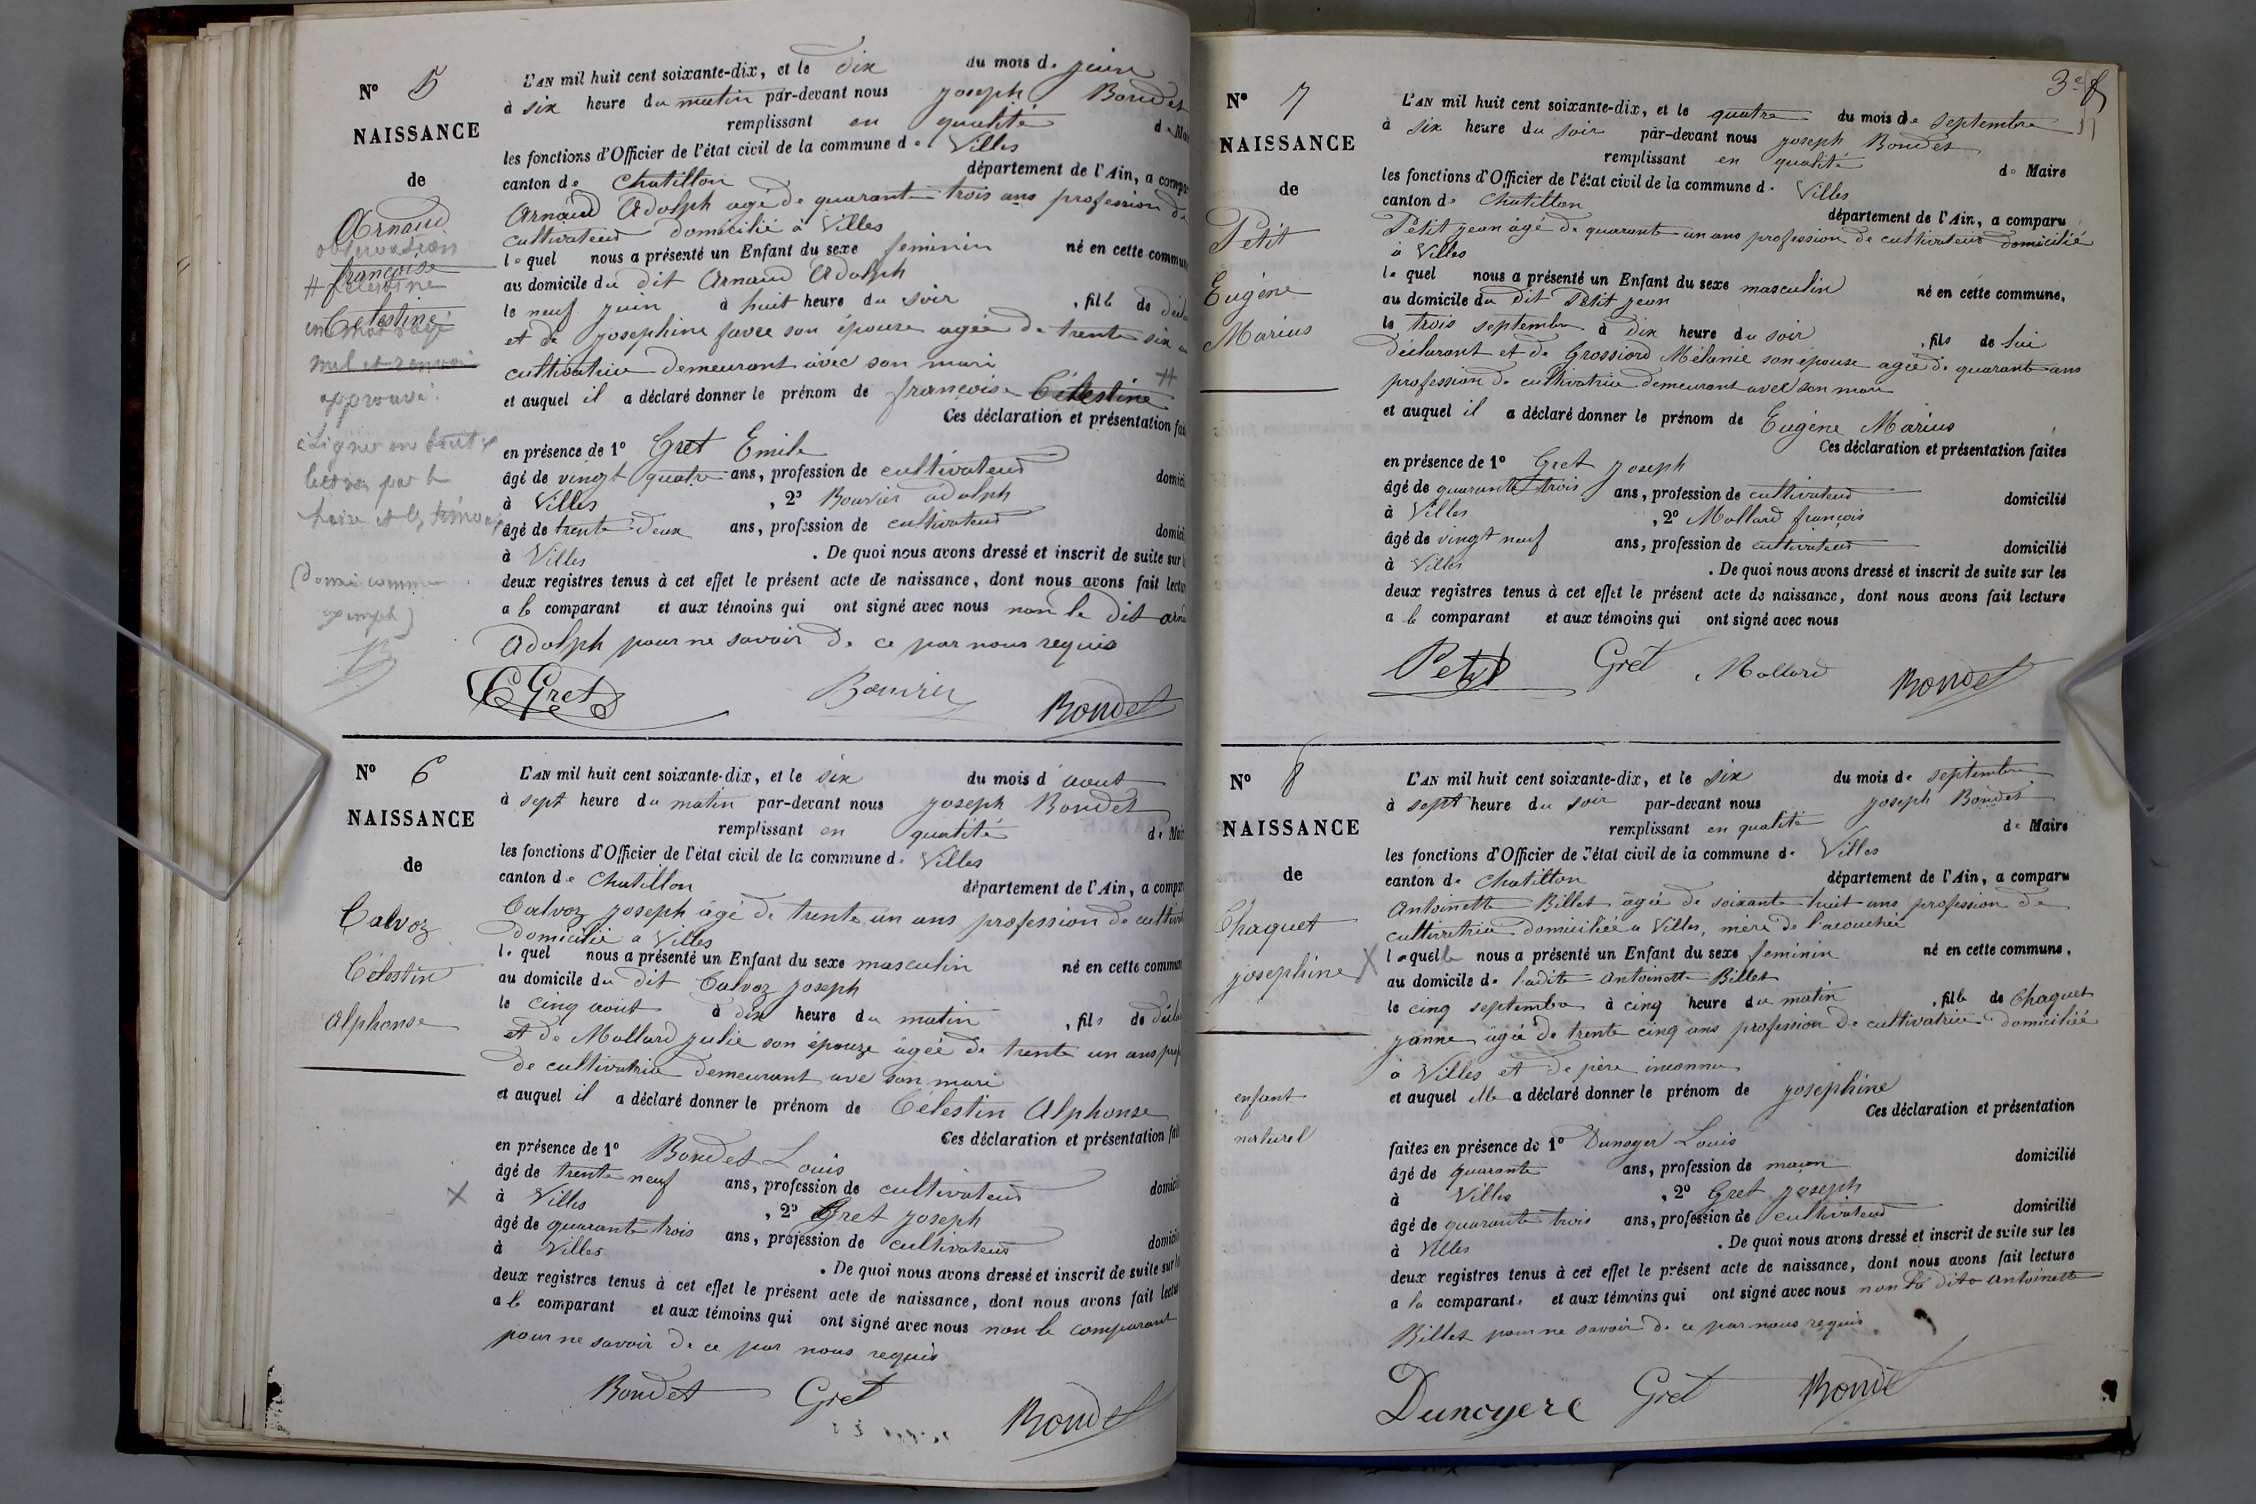 N° 5
NAISSANCE
de
Arnaud
observation
françoise
Celestine
approuvé.
L'AN mil huit cent soixante-dix, et le dix du mois d. juin
à six heure du matin par-devant nous joseph Bondet
remplissant en qualité d. Mai
les fonctions d'Officier de l'état civil de la commune d. Villes
canton de Chatillon département de l'Ain, a compa
Arnaud Adolph agé de quarante trois ans profession de
cultivateur domicilié à Villes
lequel nous a présenté un Enfant du sexe feminin né en cette commun
au domicile du dit Arnaud Adolph
le neuf juin à huit heure du soir , fille de décla
et de josephine favre son épouse agée de trente six a
cultivatrice demeurant avec son mari
et auquel il a déclaré donner le prénom de françoise Célestine #
Ces déclaration et présentation fai
en présence de 1° Gret Emile
âgé de vingt quatre ans, profession de cultivateur domici
à Villes , 2° Bouvier adolph
âgé de trente deux ans, profession de cultivateur domici
à Villes . De quoi nous avons dressé et inscrit de suite sur l
deux registres tenus à cet effet le présent acte de naissance, dont nous avons fait lectur
a le comparant et aux témoins qui ont signé avec nous non le dit arn
Adolph pour ne savoir de ce par nous requis
E Gret Bouvier Bondet
N° 6
NAISSANCE
de
Calvoz
Célestin
alphonse
L'AN mil huit cent soixante-dix, et le six du mois d'aout
à sept heure du matin par-devant nous joseph Bondet
remplissant en qualité de Mair
les fonctions d'Officier de l'état civil de la commune d. Villes
canton de Chatillon département de l'Ain, a compar
Calvoz joseph âgé de trente un ans profession de cultiva
domicilié a Villes
le quel nous a présenté un Enfant du sexe masculin né en cette commun
au domicile du dit Calvoz joseph
le cinq aout à dix heure du matin , fils de décla
et de Mollard julie son épouze âgée de trente un ans prof
de cultivatrice demeurant ave son mari
et auquel il a déclaré donner le prénom de Célestin Alphonse
Ces déclaration et présentation fait
en présence de 1° Bondet Louis
âgé de trente neuf ans, profession de cultivateur domici
à Villes , 2° Gret joseph
âgé de quarante trois ans, profession de cultivateur domici
à Villes . De quoi nous avons dressé et inscrit de suite sur l
deux registres tenus à cet effet le présent acte de naissance, dont nous avons fait lectu
a le comparant et aux témoins qui ont signé avec nous non le comparant
pour ne savoir de ce par nous requis
Bondet Gret Bondet
3e f
N° 7
NAISSANCE
de
Petit
Eugène
Marius
L'AN mil huit cent soixante-dix, et le quatre du mois de septembre
à six heure du soir par-devant nous joseph Bondet
remplissant en qualité de Maire
les fonctions d'Officier de l'état civil de la commune d. Villes
canton de Chatillon département de l'Ain, a comparu
Petit jean âgé de quarante un ans profession de cultivateur domicilié
à Villes
le quel nous a présenté un Enfant du sexe masculin né en cette commune,
au domicile du dit Petit jean
le trois septembre à dix heure du soir , fils de lui
déclarant et de Grossiord Mélanie son épouse agée de quarante ans
profession de cultivatrice demeurant avec son mari
et auquel il a déclaré donner le prénom de Eugène Marius
Ces déclaration et présentation faites
en présence de 1° Gret joseph
âgé de quarante trois ans, profession de cultivateur domicilié
à Villes , 2° Mollard françois
âgé de vingt neuf ans, profession de cultivateur domicilié
à Villes . De quoi nous avons dressé et inscrit de suite sur les
deux registres tenus à cet effet le présent acte de naissance, dont nous avons fait lecture
a le comparant et aux témoins qui ont signé avec nous
Petit Gret Mollard Bondet
N° 8
NAISSANCE
de
Chaquet
josephine
enfant
naturel
L'AN mil huit cent soixante-dix, et le six du mois de septembre
à sept heure du soir par-devant nous joseph Bondet
remplissant en qualité de Maire
les fonctions d'Officier de l'état civil de la commune d. Villes
canton de Chatillon département de l'Ain, a comparu
Antoinette Billet âgée de soixante huit ans profession de
cultivatrice domiciliée a Villes, mère de l'acouchée
laquelle nous a présenté un Enfant du sexe feminin né en cette commune,
au domicile de ladite Antoinette Billet
le cinq septembre à cinq heure du matin , fille de Chaquet
janne âgée de trente cinq ans profession de cultivatrice domiciliée
a Villes et de père inconnu
et auquel elle a déclaré donner le prénom de josephine
Ces déclaration et présentation
faites en présence de 1° Dunoyer Louis
âgé de quarante ans, profession de maçon domicilié
à Villes , 2° Gret joseph
âgé de quarante trois ans, profession de cultivateur domicilié
à Villes . De quoi nous avons dressé et inscrit de suite sur les
deux registres tenus à cet effet le présent acte de naissance, dont nous avons fait lecture
a la comparante et aux témoins qui ont signé avec nous non la dite Antoinette
Billet pour ne savoir de ce par nous requis
Dunoyere Gret Bondet